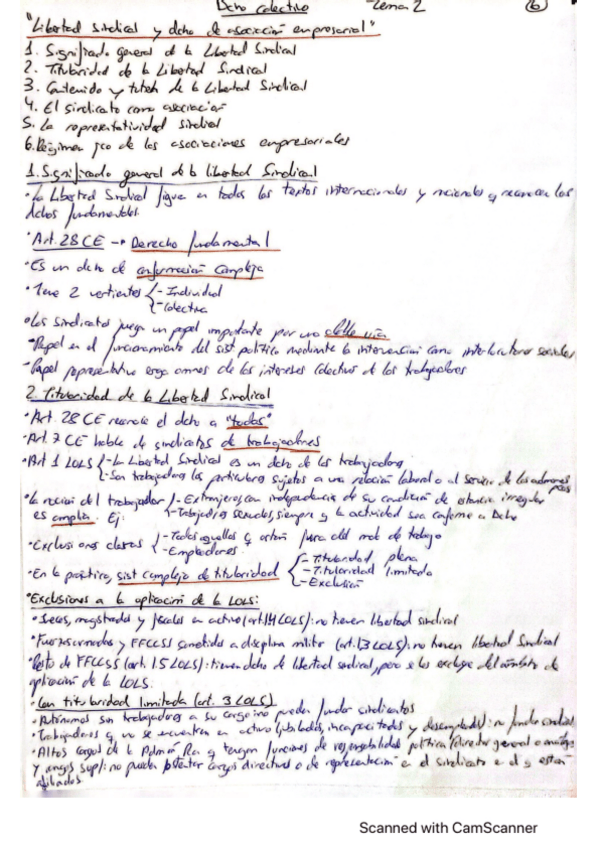 Dcho colectivo Tema 2 6
"Libertad sindical y dcho de asociación empresarial"
1. Significado general de la Libertad Sindical
2. Titularidad de la Libertad Sindical
3. Contenido y tutela de la Libertad Sindical
4. El sindicato como asociación
5. La representatividad sindical
6. Régimen jco de las asociaciones empresariales
1. Significado general de la libertad Sindical
· La Libertad Sindical figura en todos los textos internacionales y nacionales q reconocen los
dchos fundamentales.
· Art. 28 CE → Derecho fundamental
· Es un dcho de conformación compleja
· Tiene 2 vertientes - Individual
- Colectiva
· Los sindicatos juegan un papel importante por una doble vía
- Papel en el funcionamiento del sist político mediante la intervención como interlocutores sociales
- Papel representativo erga omnes de los intereses colectivos de los trabajadores
2. Titularidad de la Libertad Sindical
· Art. 28 CE reconoce el dcho a "todos"
· Art. 7 CE habla de sindicatos de trabajadores
· Art 1 LOLS - La Libertad Sindical es un dcho de los trabajadores
- Son trabajadores los particulares sujetos a una relación laboral o al servicio de las admones
pcas
· La noción del trabajador es amplia. Ej: - Extranjeros, con independencia de su condición de estancia irregular
- Trabajador@s sexuales, siempre q la actividad sea conforme a Dcho
· Exclusiones claras - Todos aquellos q actúan fuera del mdo de trabajo
- Empleadores
· En la práctica, sist complejo de titularidad - Titularidad plena
- Titularidad limitada
- Exclusión
· Exclusiones a la aplicación de la LOLS:
· Jueces, magistrados y fiscales en activo (art. 1.4 LOLS): no tienen libertad sindical
· Fuerzas armadas y FFCCSS sometidas a disciplina militar (art. 1.3 LOLS): no tienen libertad Sindical
· Resto de FFCCSS (art. 1.5 LOLS): tienen dcho de libertad sindical, pero se les excluye del ámbito de
aplicación de la LOLS.
· Con titularidad limitada (art. 3 LOLS)
· Autónomos sin trabajadores a su cargo: no pueden fundar sindicatos
· Trabajadores q no se encuentran en activo (jubilados, incapacitados y desempleados): no fundar sindicatos
· Altos cargos de la Admón Pca q tengan funciones de responsabilidad política (director general o análogo
y cargos sup): no pueden ostentar cargos directivos o de representación en el sindicato en el q estén
afiliados
Scanned with CamScanner